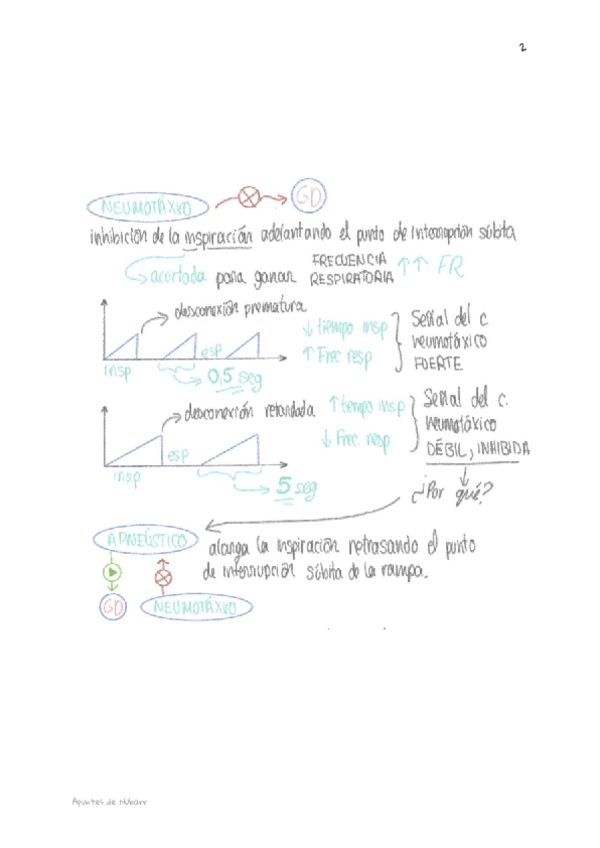 2
NEUMOTÁXICO GD
inhibición de la inspiración adelantando el punto de interrupción súbita
acortada para ganar FRECUENCIA RESPIRATORIA ↑↑ FR
desconexión prematura
insp esp
0,5 seg
↓ tiempo insp
↑ Frec resp
Señal del c.
neumotáxico
FUERTE
desconexión retardada
insp esp
5 seg
↑ tiempo insp
↓ Frec. resp
Señal del c.
neumotáxico
DÉBIL, INHIBIDA
¿Por qué?
APNEÚSTICO
alarga la inspiración retrasando el punto
de interrupción súbita de la rampa.
GD NEUMOTÁXICO
Apuntes de